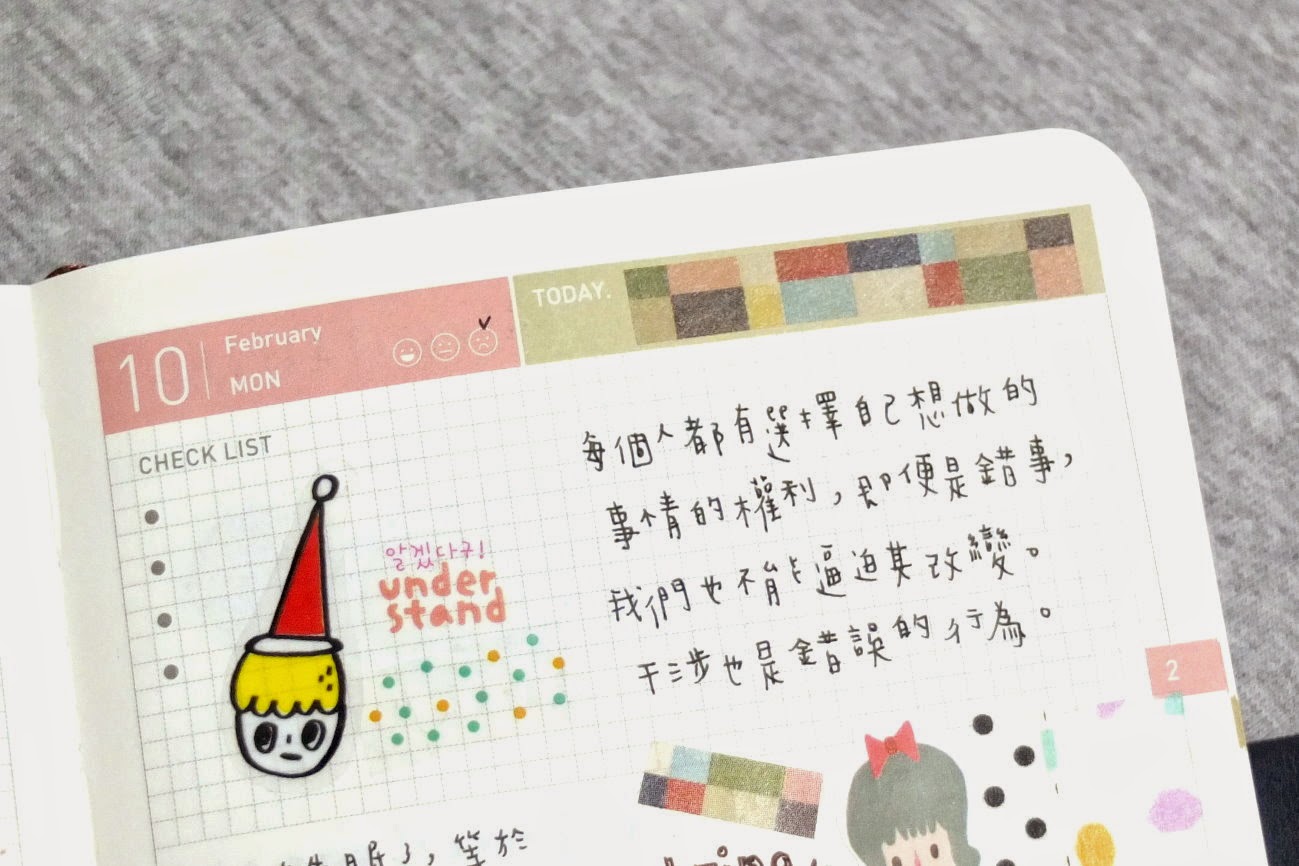 10 February
MON
TODAY.
CHECK LIST
알겠다구!
under
stand
每個人都有選擇自己想做的
事情的權利，即便是錯事，
我們也不能逼迫其改變。
干涉也是錯誤的行為。
2
了，等於